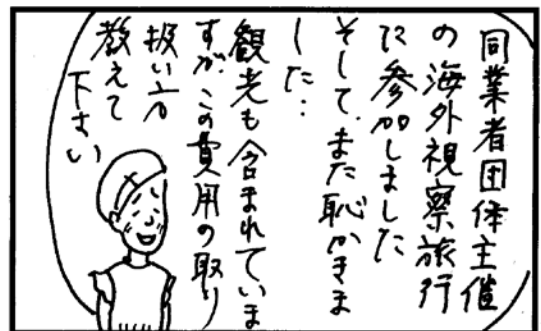 同業者団体主催
の海外視察旅行
に参加しました
そして、また恥かきま
した…
観光も含まれていま
すが、この費用の取り
扱い方
教えて
下さい